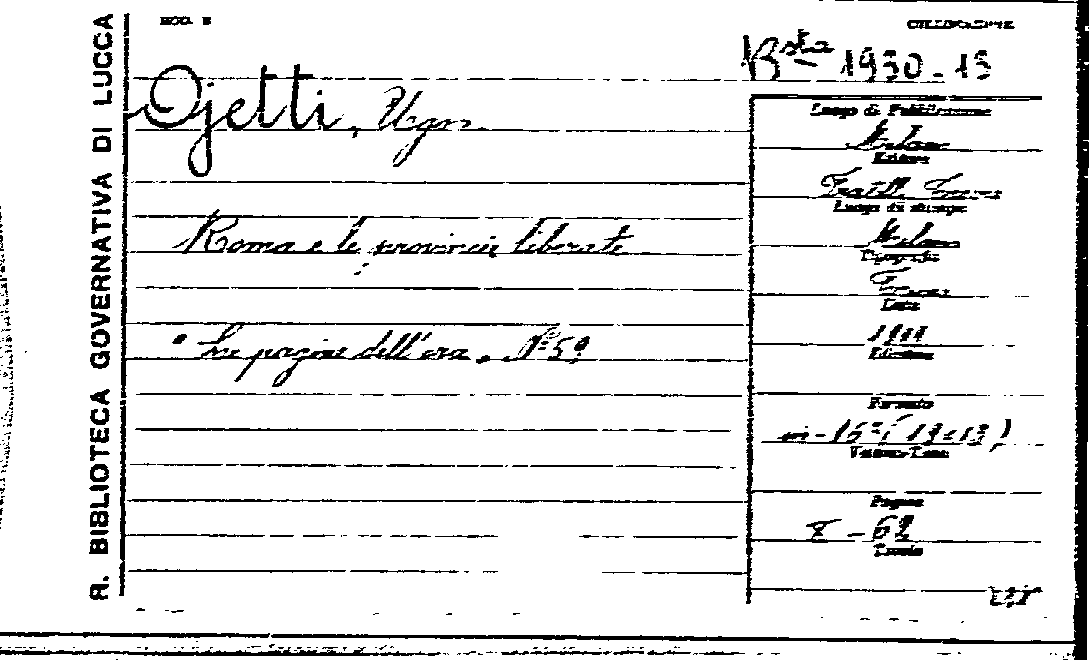 R. BIBLIOTECA GOVERNATIVA DI LUCCA
MOD. B
COLLOCAZIONE
Bsta 1930-13
Ojetti, Ugo
Roma e le provincie liberate
"Le pagine dell'ora" N° 59
Luogo di Pubblicazione
Milano
Editore
Fratelli Treves
Luogo di stampa
Milano
Tipografia
Treves
Data
Edizione
Formato
in-16° (19×13)
Pagine
62
Tavole